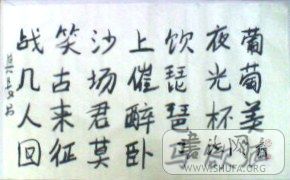 葡萄美
夜光杯
饮琵琶马
上催醉卧
沙场君莫
笑古来征
战几人回
WWW.SHUFA.ORG